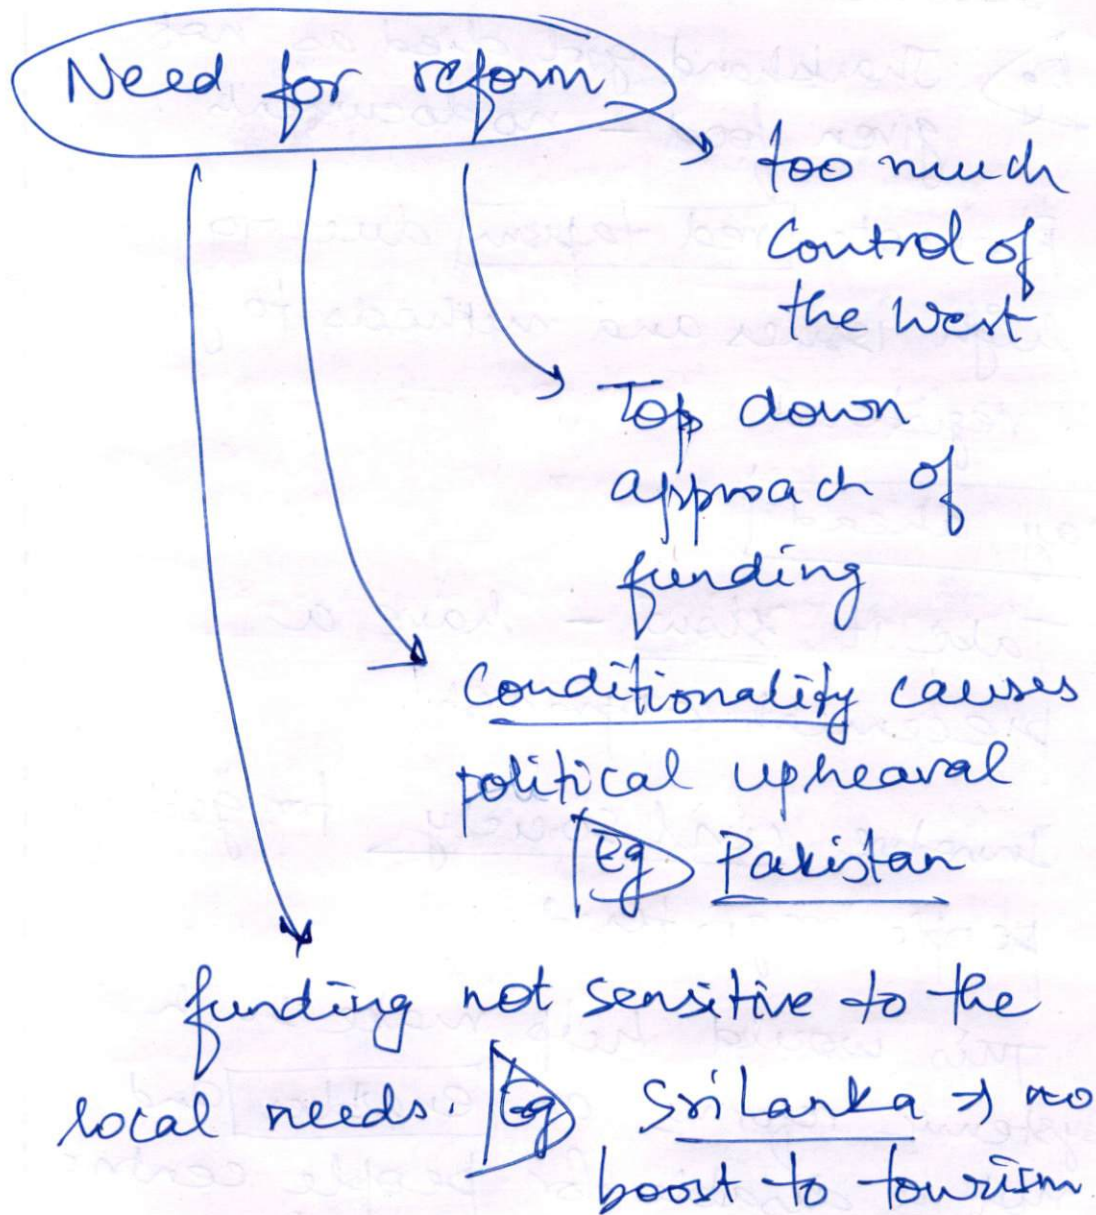 Need for reform
too much
control of
the West
Top down
approach of
funding
Conditionality causes
political upheaval
Eg Pakistan
funding not sensitive to the
local needs. Eg Sri Lanka → no
boost to tourism